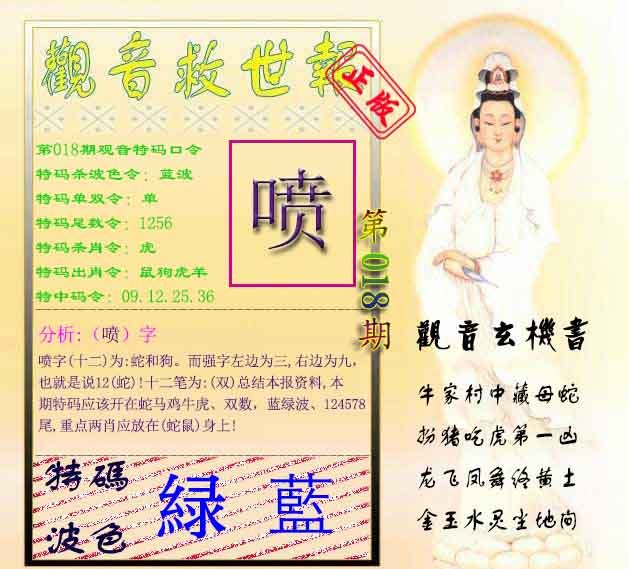 觀音救世報
正版
第018期观音特码口令
特码杀波色令：蓝波
特码单双令：单
特码尾数令：1256
特码杀肖令：虎
特码出肖令：鼠狗虎羊
特中码令：09.12.25.36
喷
第018期
分析:（喷）字
喷字(十二)为:蛇和狗。而强字左边为三,右边为九，
也就是说12(蛇)!十二笔为:(双)总结本报资料,本
期特码应该开在蛇马鸡牛虎、双数，蓝绿波、124578
尾,重点两肖应放在(蛇鼠)身上!
特碼
波色
緑 藍
觀音玄機書
牛家村中藏母蛇
扮猪吃虎第一凶
龙飞凤舞终黄土
金玉水灵尘地间